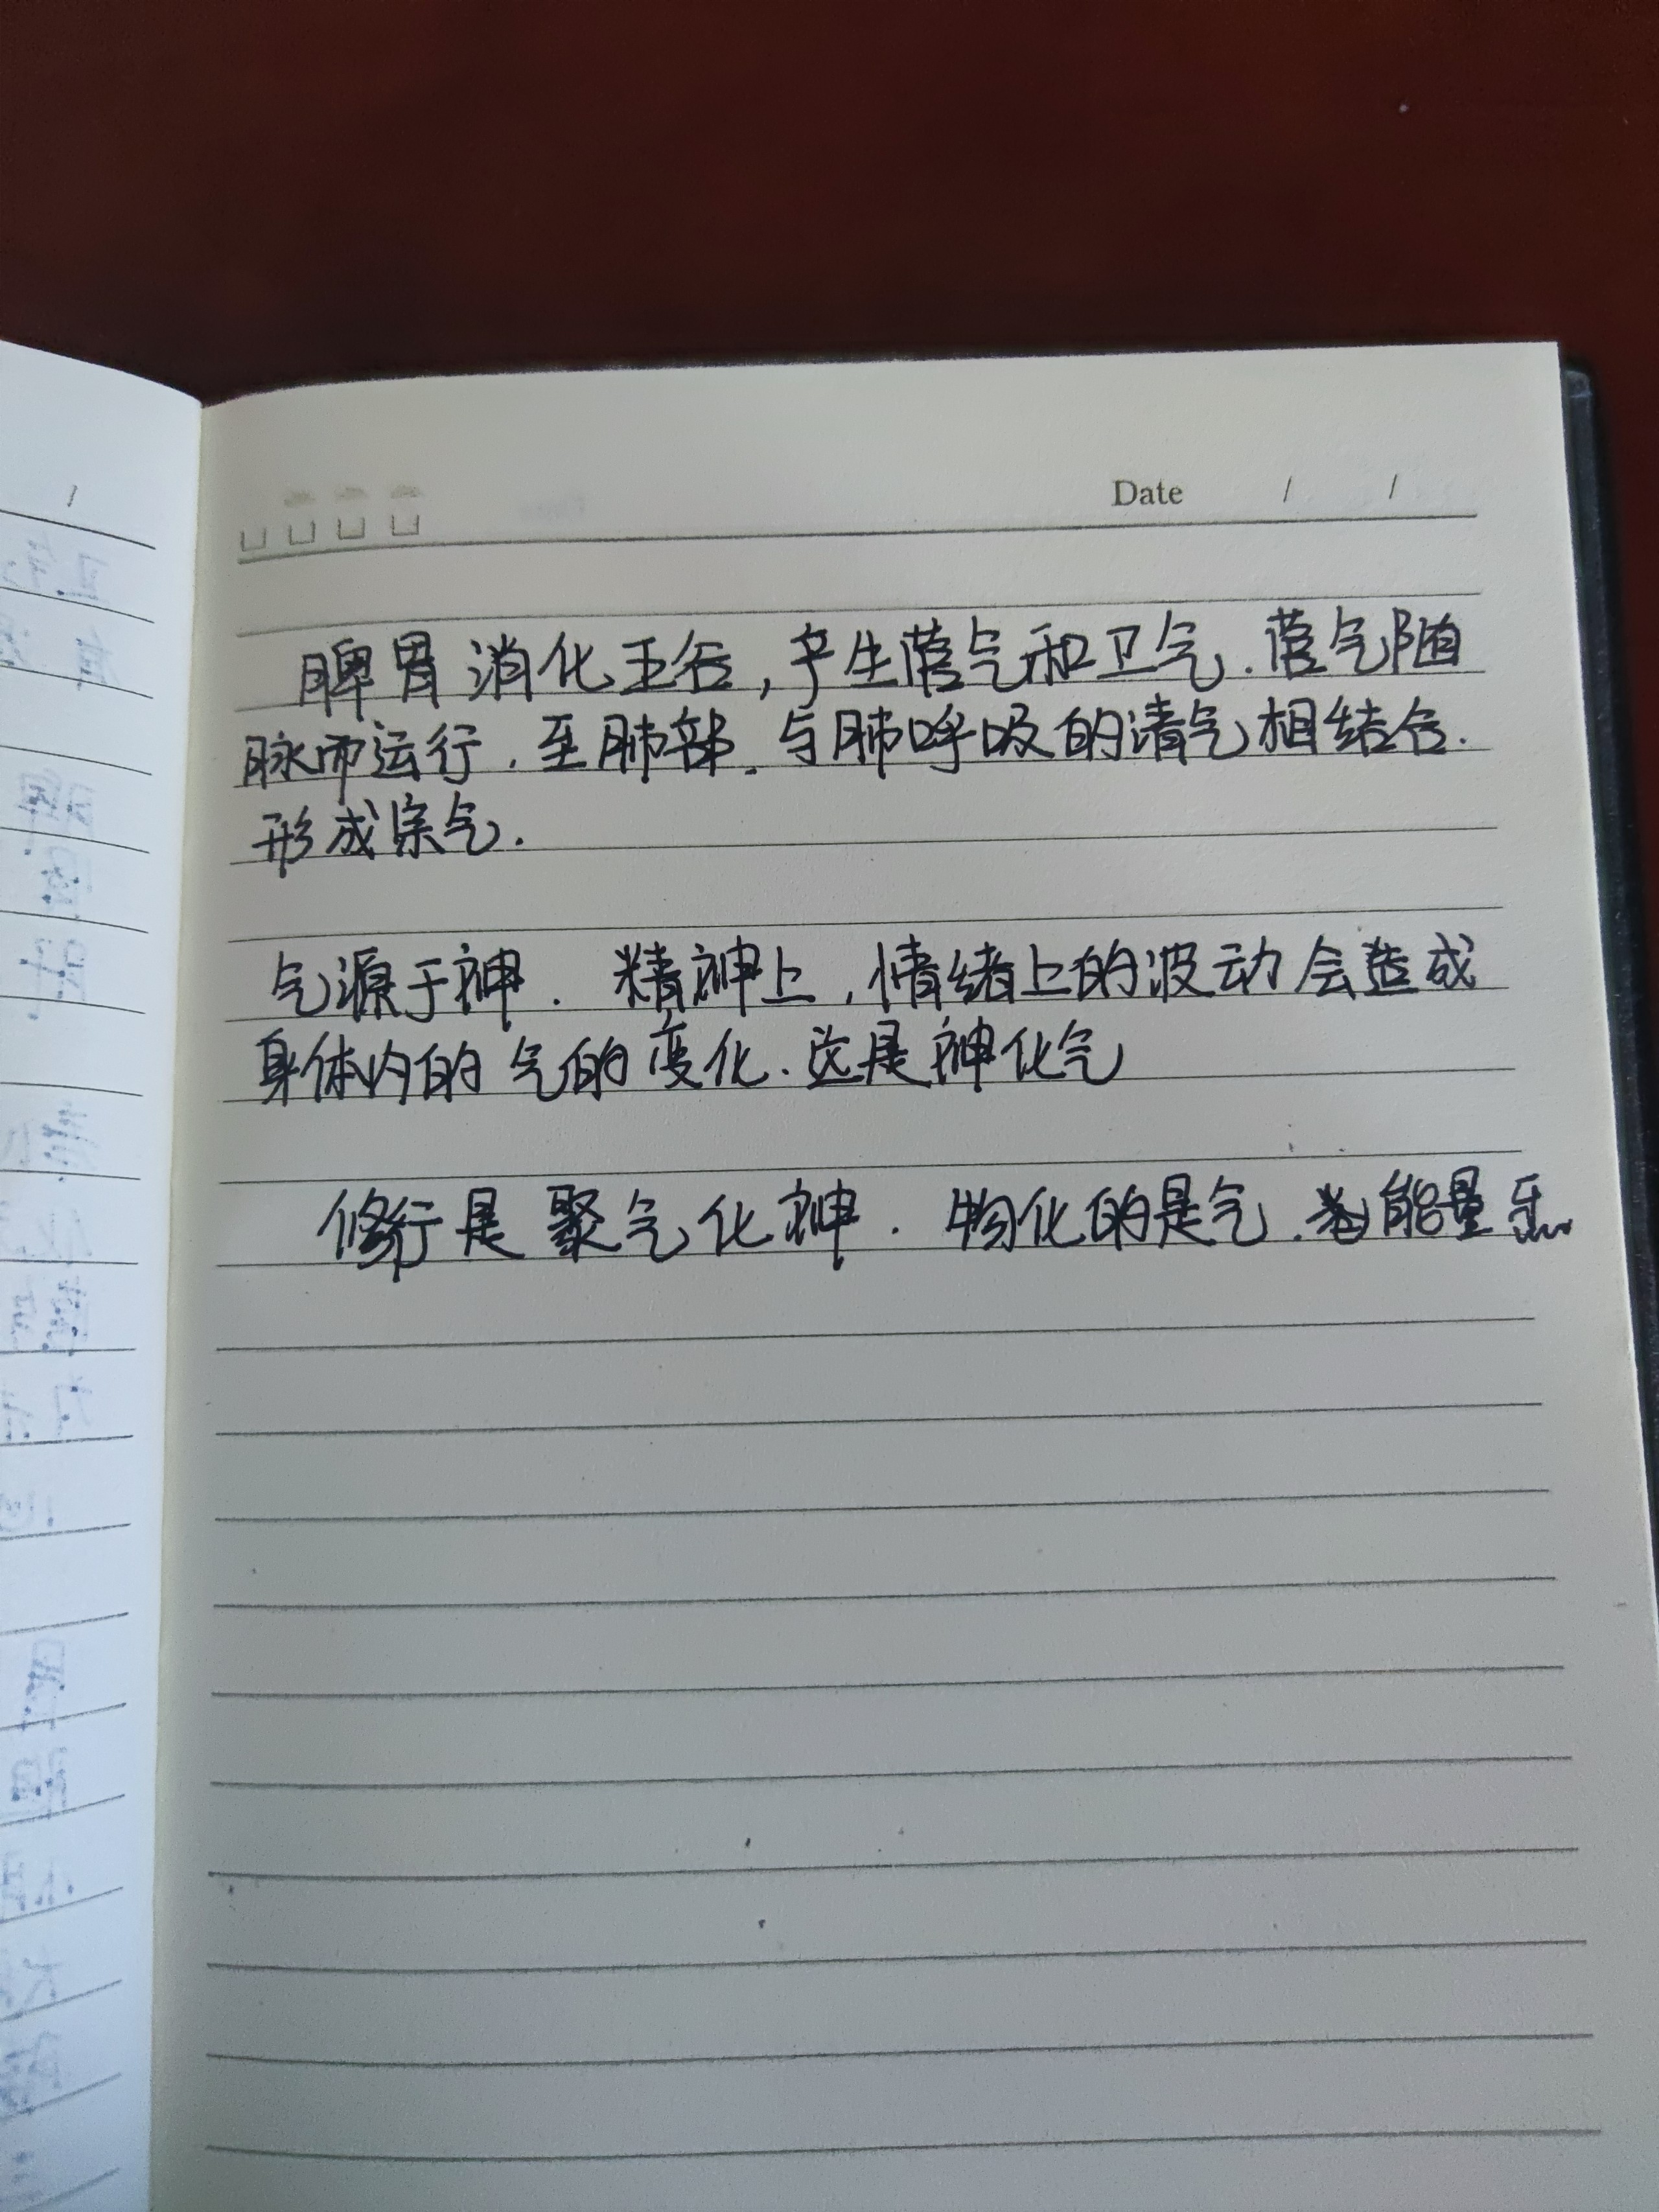 Date / /
脾胃消化五谷,产生营气和卫气.营气随
脉而运行.至肺部.与肺呼吸的清气相结合.
形成宗气.
气源于神.精神上,情绪上的波动会造成
身体内的气的变化.这是神化气
修行是聚气化神.物化的是气.能量